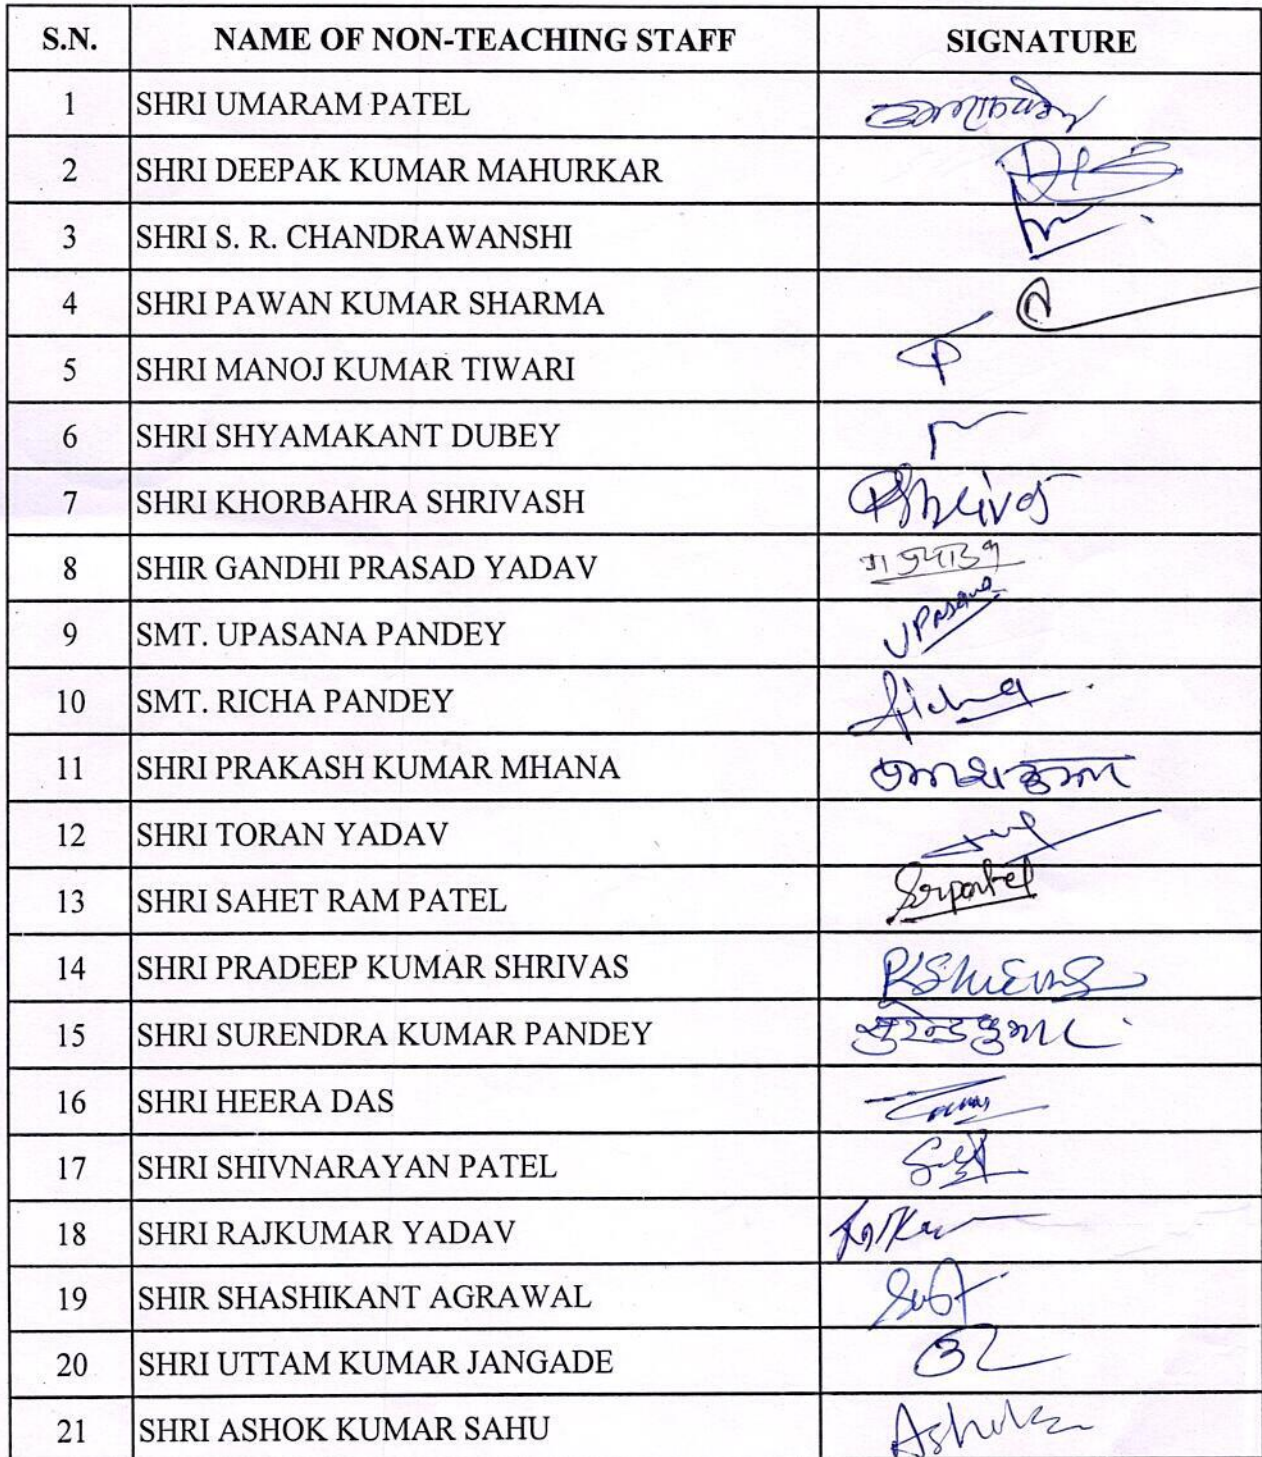 S.N. NAME OF NON-TEACHING STAFF SIGNATURE
1 SHRI UMARAM PATEL
2 SHRI DEEPAK KUMAR MAHURKAR
3 SHRI S. R. CHANDRAWANSHI
4 SHRI PAWAN KUMAR SHARMA
5 SHRI MANOJ KUMAR TIWARI
6 SHRI SHYAMAKANT DUBEY
7 SHRI KHORBAHRA SHRIVASH
8 SHIR GANDHI PRASAD YADAV
9 SMT. UPASANA PANDEY Upasana
10 SMT. RICHA PANDEY Richa
11 SHRI PRAKASH KUMAR MHANA
12 SHRI TORAN YADAV
13 SHRI SAHET RAM PATEL Srpatel
14 SHRI PRADEEP KUMAR SHRIVAS
15 SHRI SURENDRA KUMAR PANDEY सुरेन्द्र कुमार
16 SHRI HEERA DAS
17 SHRI SHIVNARAYAN PATEL
18 SHRI RAJKUMAR YADAV
19 SHIR SHASHIKANT AGRAWAL
20 SHRI UTTAM KUMAR JANGADE
21 SHRI ASHOK KUMAR SAHU